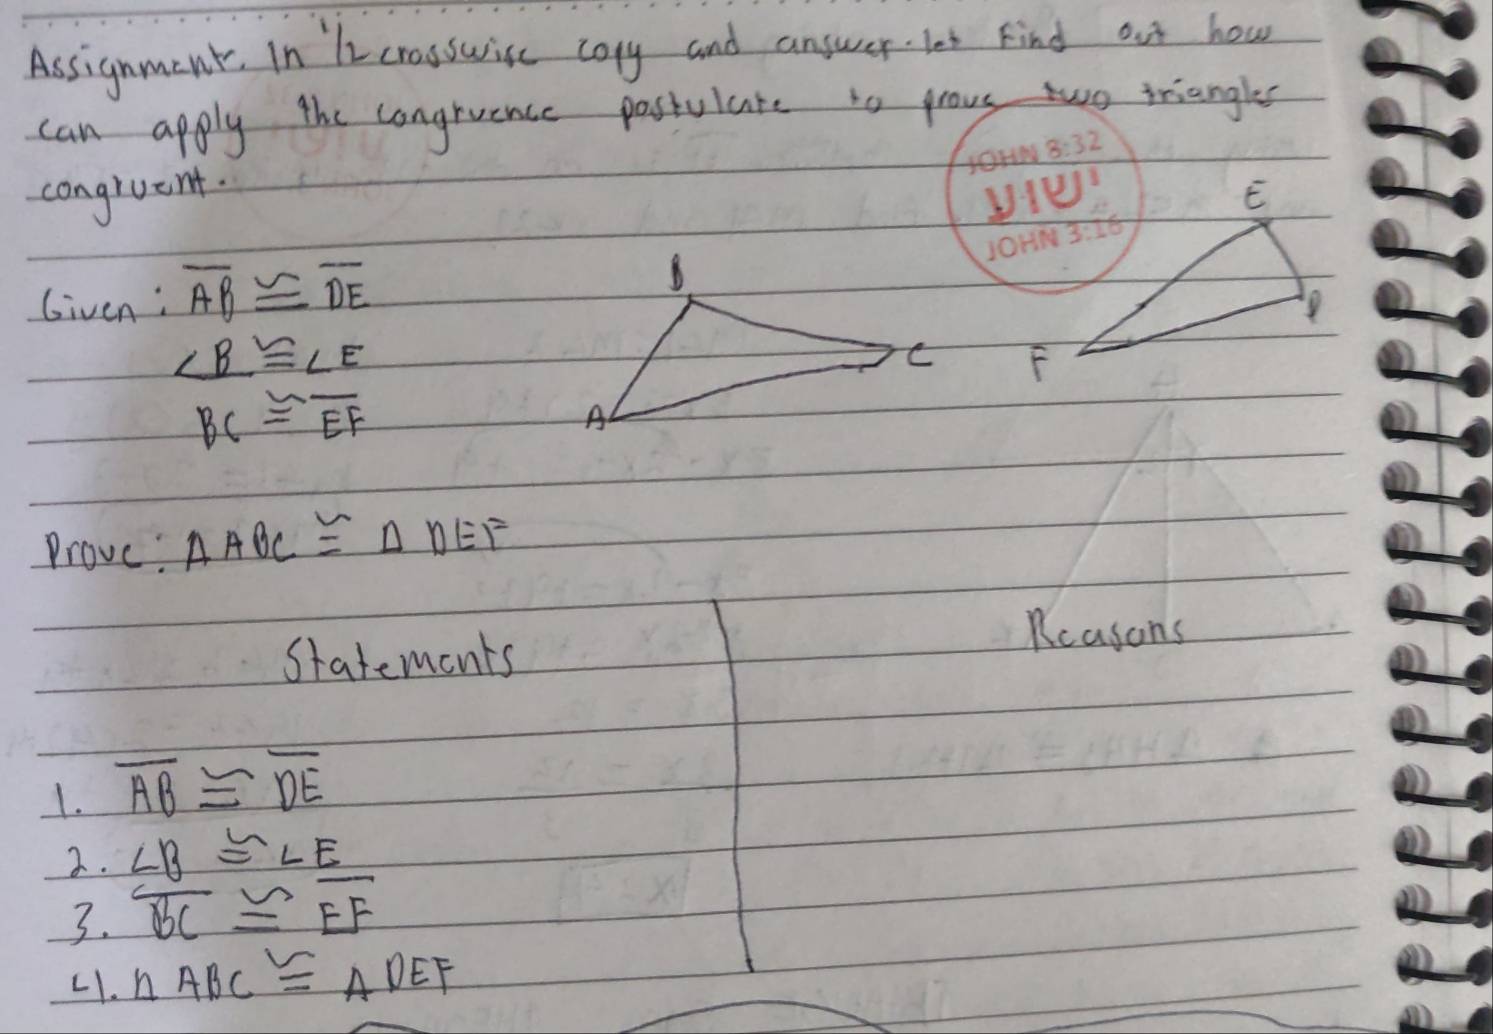 Assignment. In 1/2 crosswise copy and answer. let Find out how
can apply the congruence postulate to prove two triangles
congruent.
JOHN 8:32
ישוע
JOHN 3:16
Given: AB ≅ DE
∠B ≅ ∠E
BC ≅ EF
B
A
C
E
D
F
Prove: Δ ABC ≅ Δ DEF
Statements
Reasons
1. AB ≅ DE
2. ∠B ≅ ∠E
3. BC ≅ EF
4. Δ ABC ≅ Δ DEF